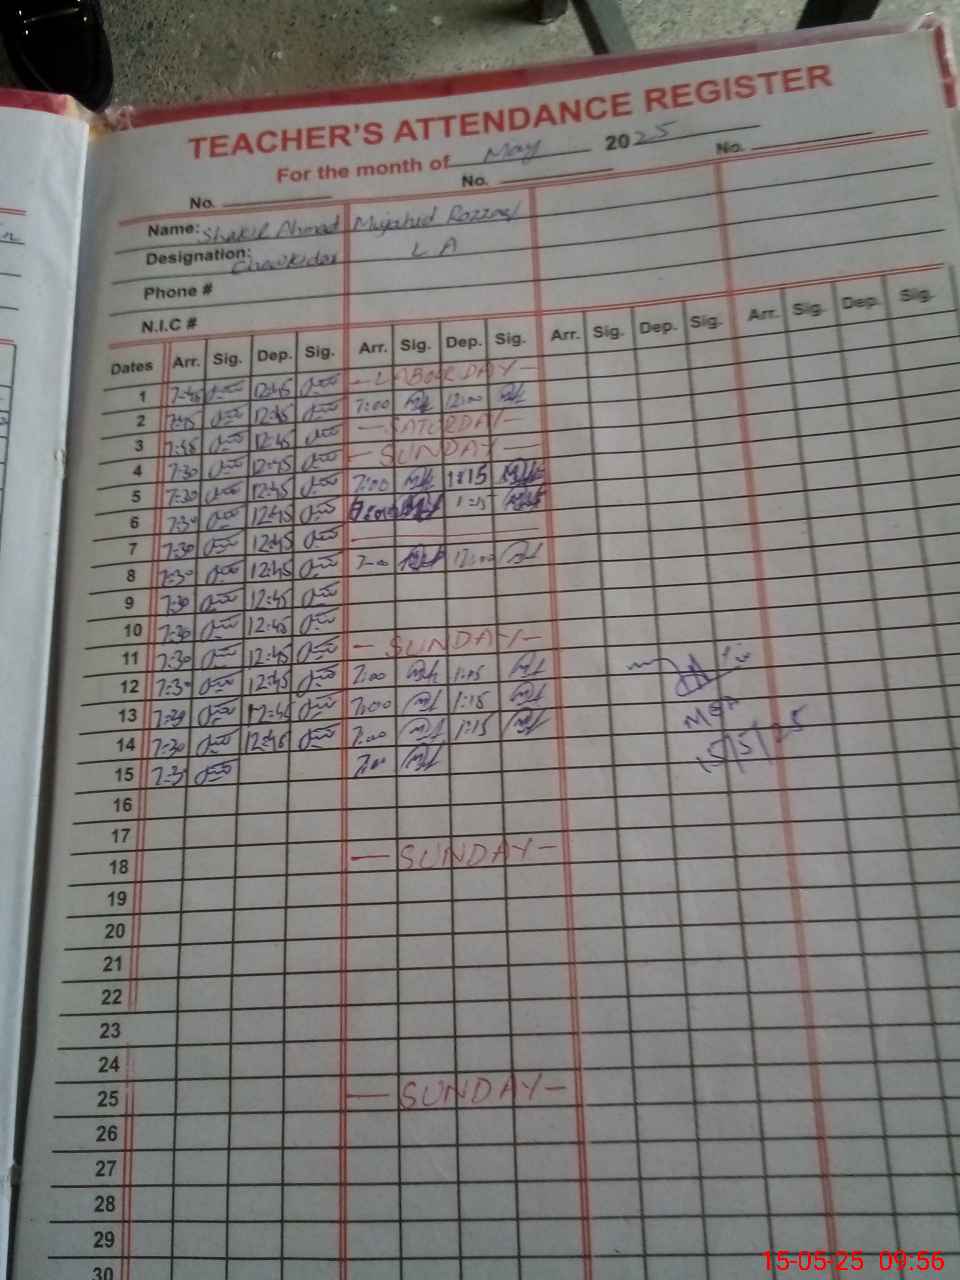 TEACHER'S ATTENDANCE REGISTER
For the month of May 2025
No. No. No.
Name: Shakir Ahmad Mujahid Razzaq
Designation: Chowkidar L A
Phone #
N.I.C #
Dates Arr. Sig. Dep. Sig. Arr. Sig. Dep. Sig. Arr. Sig. Dep. Sig. Arr. Sig. Dep. Sig.
1 7:45 12:45 - LABOUR DAY -
2 7:45 12:45 7:00 12:00
3 7:45 12:45 - SATURDAY -
4 7:30 12:45 - SUNDAY -
5 7:30 12:45 7:00 1:15
6 7:30 12:45 1:15
7 7:30 12:45
8 7:30 12:45 7:00 12:00
9 7:30 12:45
10 7:30 12:45
11 7:30 12:45 - SUNDAY -
12 7:30 12:45 7:00 1:15
13 7:30 12:45 7:00 1:15
14 7:30 12:45 7:00 1:15
15 7:30 7:00
MEA
15/5/25
16
17
18 - SUNDAY -
19
20
21
22
23
24
25 - SUNDAY -
26
27
28
29
30
15-05-25 09:56